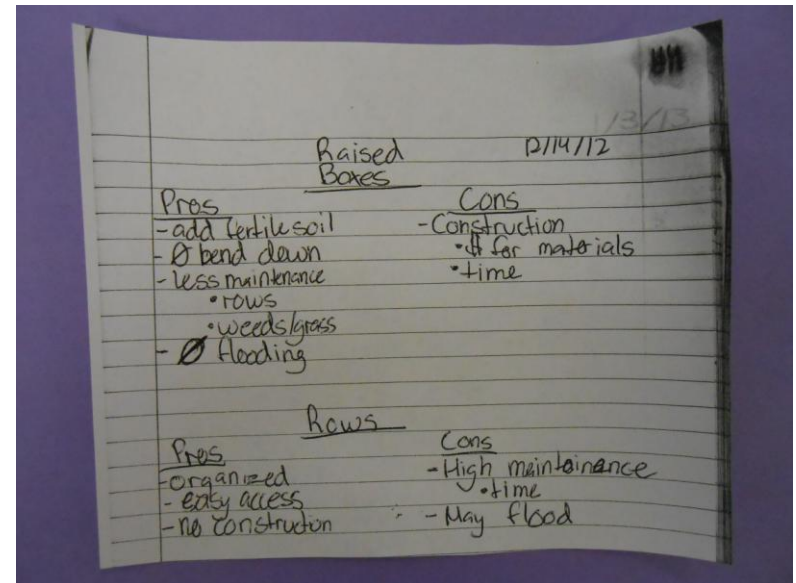 Raised 12/14/12
Boxes
Pros
- add fertile soil
- Ø bend down
- less maintenance
• rows
• weeds/grass
- Ø flooding
Cons
- Construction
• $ for materials
• time
Rows
Pros
- organized
- easy access
- no constructon
Cons
- High maintainance
• time
- May flood